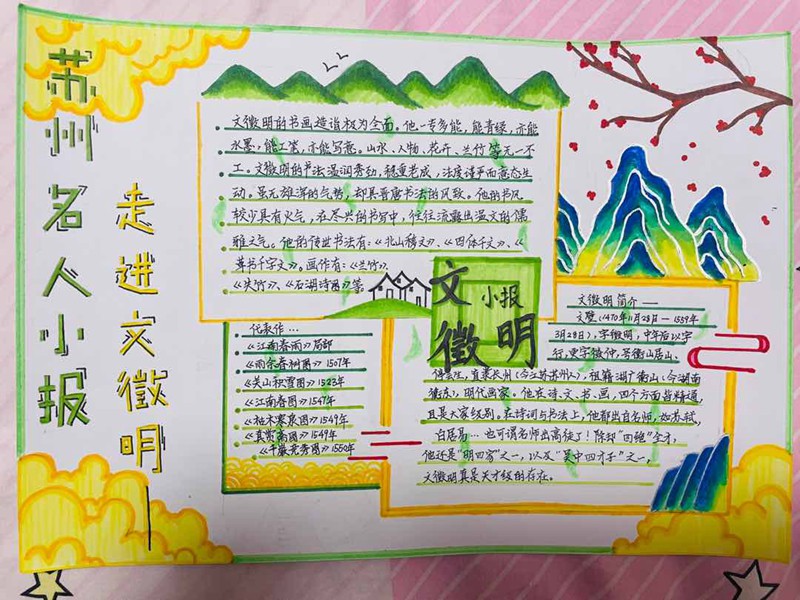 苏州名人小报
走进文徵明——
文徵明的书画造诣极为全面。他一专多能，能青绿，亦能
水墨，能工笔，亦能写意。山水、人物、花卉、兰竹等无一不
工。文徵明的书法温润秀劲，稳重老成，法度谨严而意态生
动。虽无雄浑的气势，却具晋唐书法的风致。他的书风
较少具有火气，在尽兴的书写中，往往流露出温文的儒
雅之气。他的传世书法有：《北山移文》、《四体千文》、《
草书千字文》。画作有：《兰竹》、
《朱竹》、《石湖诗图》等。
文徵明
小报
代表作…
《江南春雨》局部
《雨余春树图》1507年
《关山积雪图》1523年
《江南春图》1547年
《柏木寒泉图》1549年
《真赏斋图》1549年
《千岩竞秀图》1550年
文徵明简介——
文壁（1470年11月28日－1559年
3月28日），字徵明，中年后以字
行，更字徵仲，号衡山居山、
停云生，直隶长州（今江苏苏州人），祖籍湖广衡山（今湖南
衡东），明代画家。他在诗、文、书、画，四个方面皆精通，
且是大家级别。在诗词与书法上，他都出自名师，如苏轼，
白居易…也可谓名师出高徒了！除却“四绝”全才，
他还是“明四家”之一，以及“吴中四才子”之一，
文徵明真是天才级的存在。